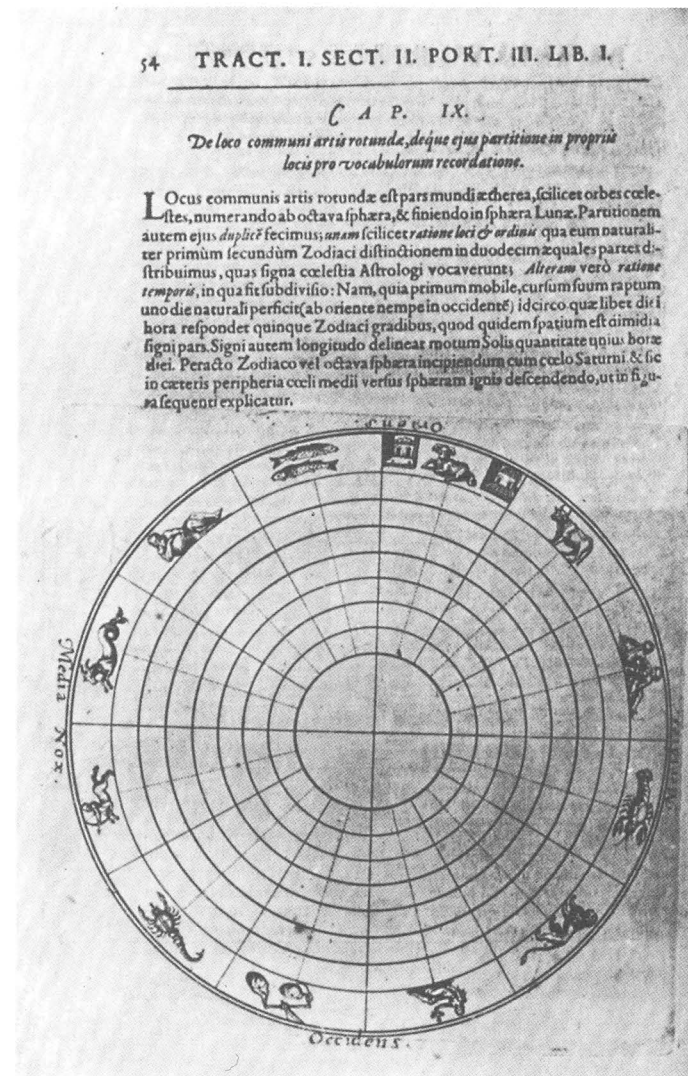 54 TRACT. I. SECT. II. PORT. III. LIB. I.
CAP. IX.
De loco communi artis rotundæ, deque ejus partitione in propriis
locis pro vocabulorum recordatione.
LOcus communis artis rotundæ est pars mundi ætherea, scilicet orbes cœle-
stes, numerando ab octava sphæra, & finiendo in sphæra Lunæ. Partitionem
autem ejus duplicẽ fecimus; unam scilicet ratione loci & ordinis qua eum naturali-
ter primùm secundùm Zodiaci distinctionem in duodecim æquales partes di-
stribuimus, quas signa cœlestia Astrologi vocaverunt; Alteram verò ratione
temporis, in qua fit subdivisio: Nam, quia primum mobile, cursum suum raptum
uno die naturali perficit (ab oriente nempe in occidentẽ) idcirco quælibet diei
hora respondet quinque Zodiaci gradibus, quod quidem spatium est dimidia
signi pars. Signi autem longitudo delineat motum Solis quantitate unius horæ
diei. Peracto Zodiaco vel octava sphæra incipiendum cum cœlo Saturni & sic
in cæteris peripheria cœli medii versus sphæram ignis descendendo, ut in figu-
ra sequenti explicatur.
Media Nox.
Occidens.